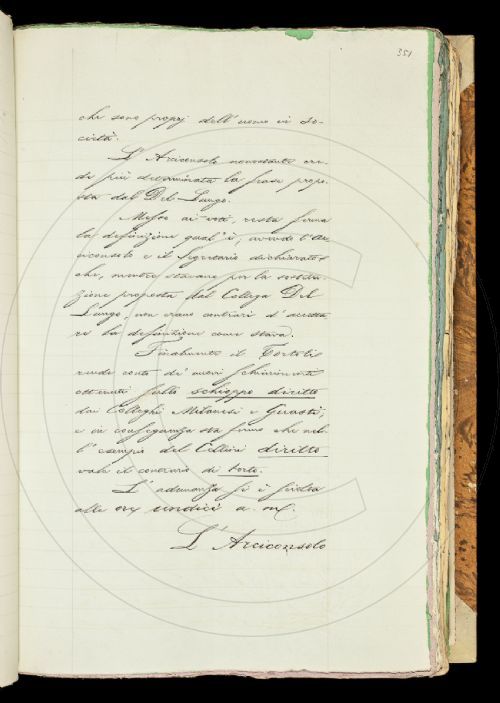 351
che sono proprj dell'uomo in So-
cietà.
L'Arciconsolo nonostante cre-
de più determinata la frase propo-
sta dal Del-Lungo.
Messe ai voti, resta ferma
la definizione qual'è, avendo l'Ar-
ciconsolo e il Segretario dichiarato
che, mentre stavano per la sostitu-
zione proposta dal Collega Del
Lungo, non erano contrari d'accetta-
re la definizione come stava.
Finalmente il Tortoli
rende conto di nuovi schiarimenti
ottenuti sullo schioppo diritto
dai Colleghi Milanesi e Guasti,
e in conseguenza sta fermo che nel-
l'esempio del Cellini diritto
vale il contrario di torto.
L'adunanza si è sciolta
alle ore undici a. m.
L'Arciconsolo